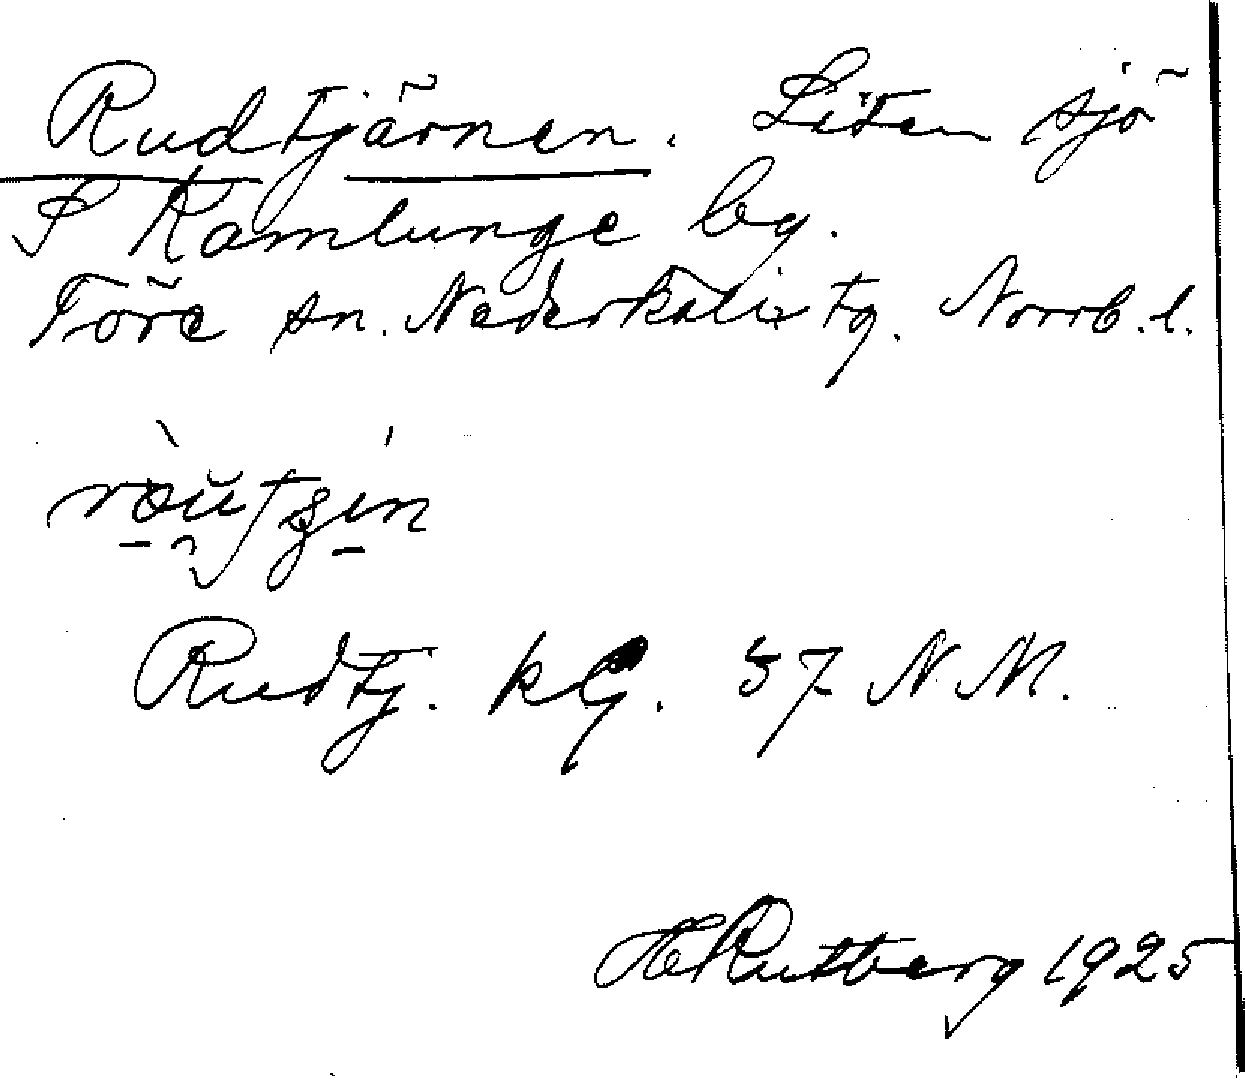 Rudtjärnen. Liten sjö
S Kamlunge by.
Töre sn. Nederkalix tg. Norrb. l.
Rudtj. kG. 57 N. M.
H Rutberg 1925